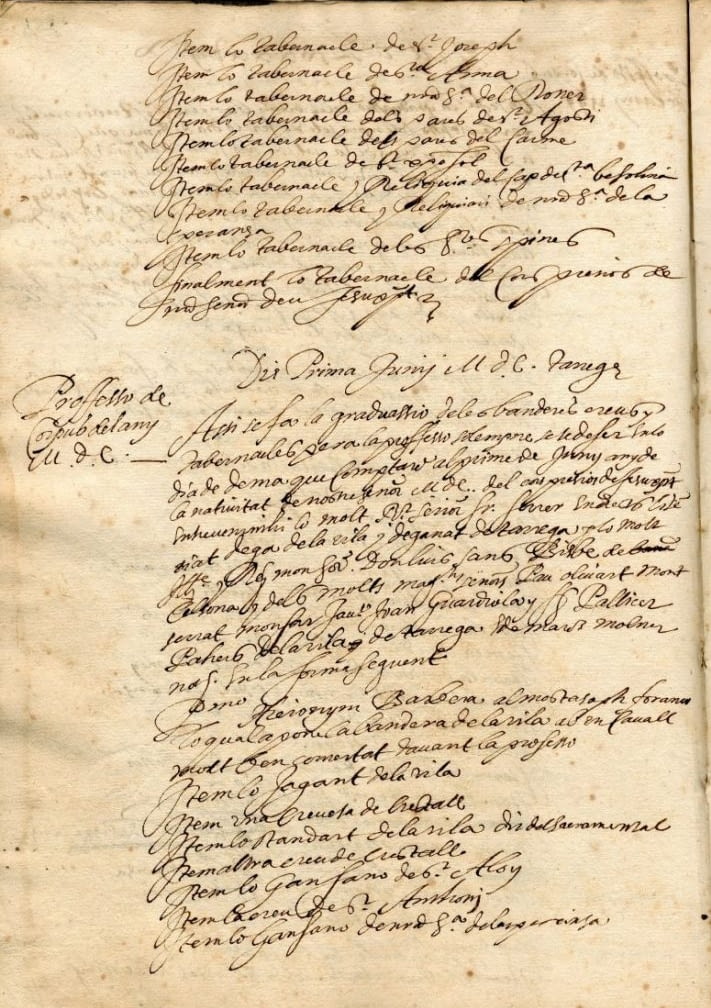 Item lo tabernacle de St. Joseph
Item lo tabernacle de Sta Anna
Item lo tabernacle de nra Sa del Roser
Item lo tabernacle dels pares de St. Agosti
Item lo tabernacle dels pares del Carme
Item lo tabernacle de St
Item lo tabernacle y Reliquia del cap de Sta
Item lo tabernacle y Reliquiari de nra Sa de la
Sperança
Item lo tabernacle de les Stes Spines
Finalment lo tabernacle del Cors precios de
nre senor deu Jesuxpt
Die Prima Junij M d C. Tarrege
Professo de
Corpus del any
M. d. C.
Assi se fa la graduassio de les banderes creus y
tabernacles pera la professo solempne se ha de fer en lo
dia de dema que comptarem al prime de Juny any de
la nativitat de nostre senor M dC. del cors precios de Jesuxpt
entrevenint hi lo molt Rt senor fr. ferrer
dega de la vila y deganat de tarrega y lo molt
Ille y Rm monsor. Don luis sans Bisbe de
Celsona y dels molts magchs senors Pau olivart Mont
serrat monfar Jaume Joan Guardiola y Pallicer
Pahers de la vila de tarrega
not. en la forma seguent
Pmo Hieronym Barbera almostasaph foraneo
lo qual aporte la bandera de la vila ab un Cavall
molt ben davant la professo
Item lo Jagant de la vila
Item una Creueta de Crestall
Item lo standart de la vila dit del Sacrament
Item altra creu de Crestall
Item lo Ganfano de St. Aloy
Item la creu de St. Anthoni
Item lo Ganfano de nra Sa de la sperança